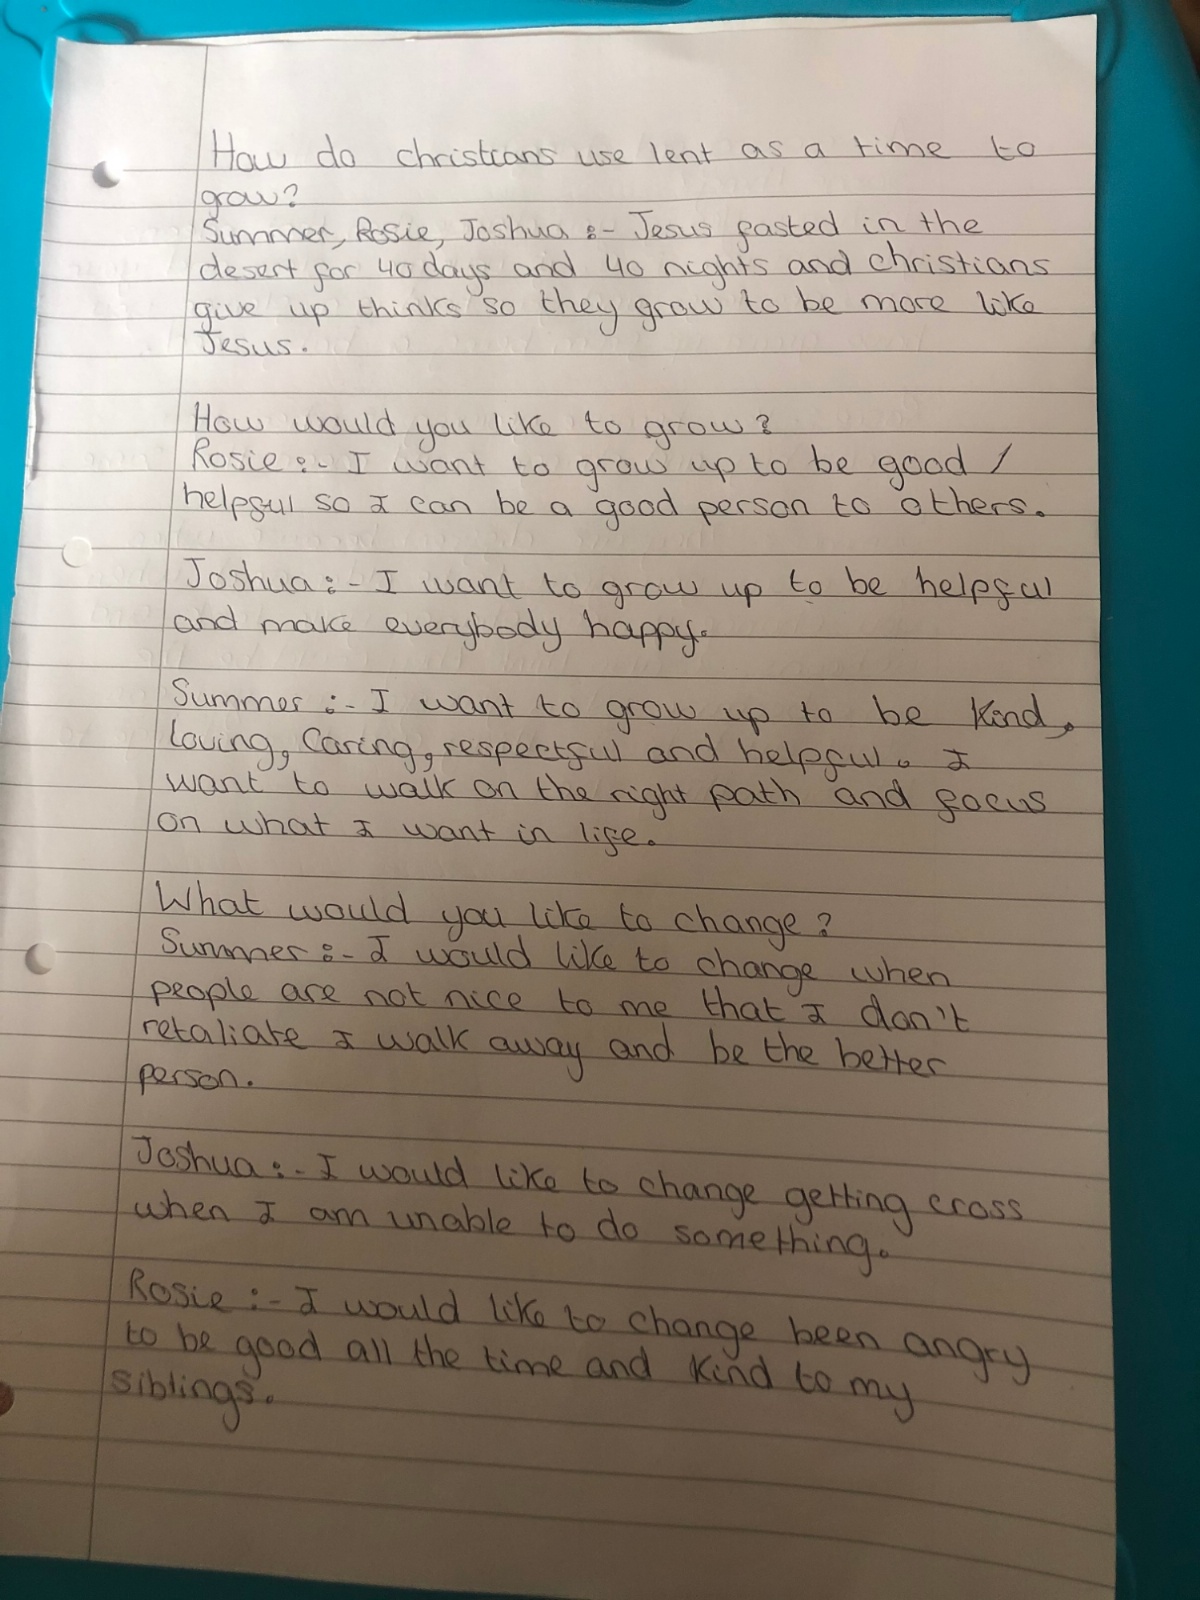 How do christians use lent as a time to
grow?
Summer, Rosie, Joshua :- Jesus fasted in the
desert for 40 days and 40 nights and christians
give up thinks so they grow to be more like
Jesus.
How would you like to grow?
Rosie :- I want to grow up to be good /
helpful so I can be a good person to others.
Joshua :- I want to grow up to be helpful
and make everybody happy.
Summer :- I want to grow up to be kind,
loving, caring, respectful and helpful. I
want to walk on the right path and focus
on what I want in life.
What would you like to change?
Summer :- I would like to change when
people are not nice to me that I don't
retaliate I walk away and be the better
person.
Joshua :- I would like to change getting cross
when I am unable to do something.
Rosie :- I would like to change been angry
to be good all the time and kind to my
siblings.